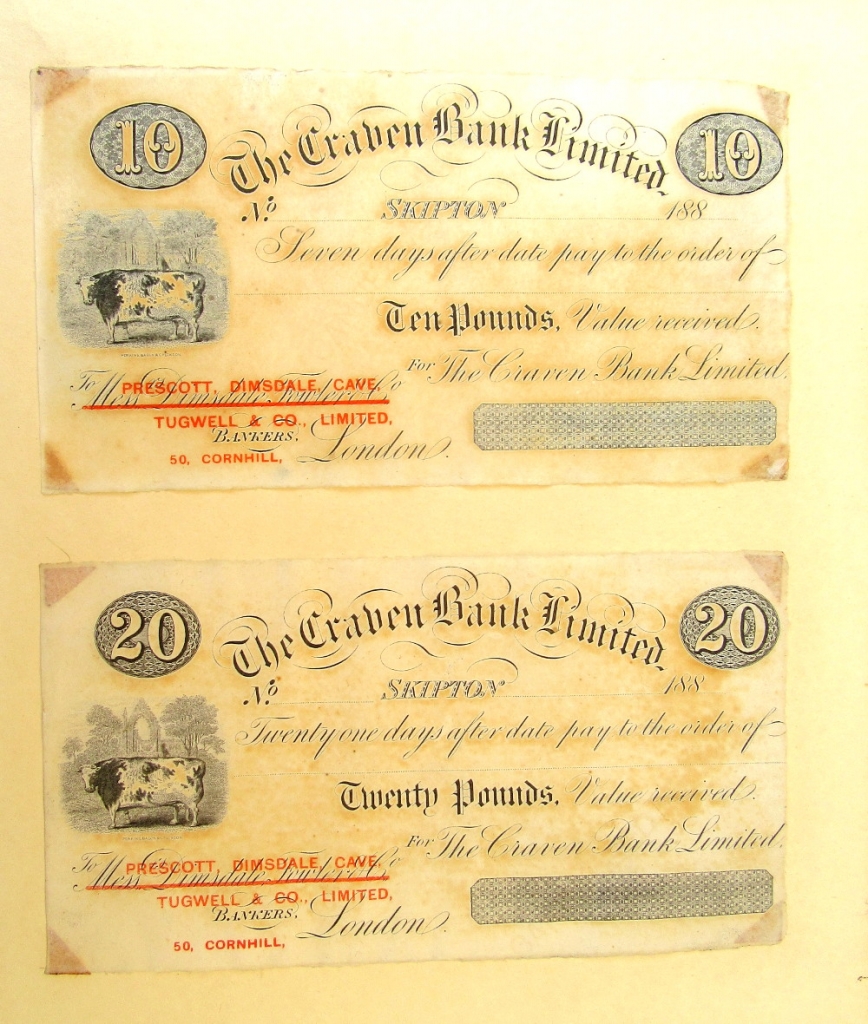 10 The Craven Bank Limited. 10
No. SKIPTON 188
Seven days after date pay to the order of
Ten Pounds, Value received.
For The Craven Bank Limited.
To Mess Dimsdale Fowler & Co
PRESCOTT, DIMSDALE, CAVE,
TUGWELL & CO., LIMITED,
BANKERS, London.
50, CORNHILL,
20 The Craven Bank Limited. 20
No. SKIPTON 188
Twenty one days after date pay to the order of
Twenty Pounds, Value received.
For The Craven Bank Limited.
To Mess Dimsdale Fowler & Co
PRESCOTT, DIMSDALE, CAVE,
TUGWELL & CO., LIMITED,
BANKERS, London.
50, CORNHILL,